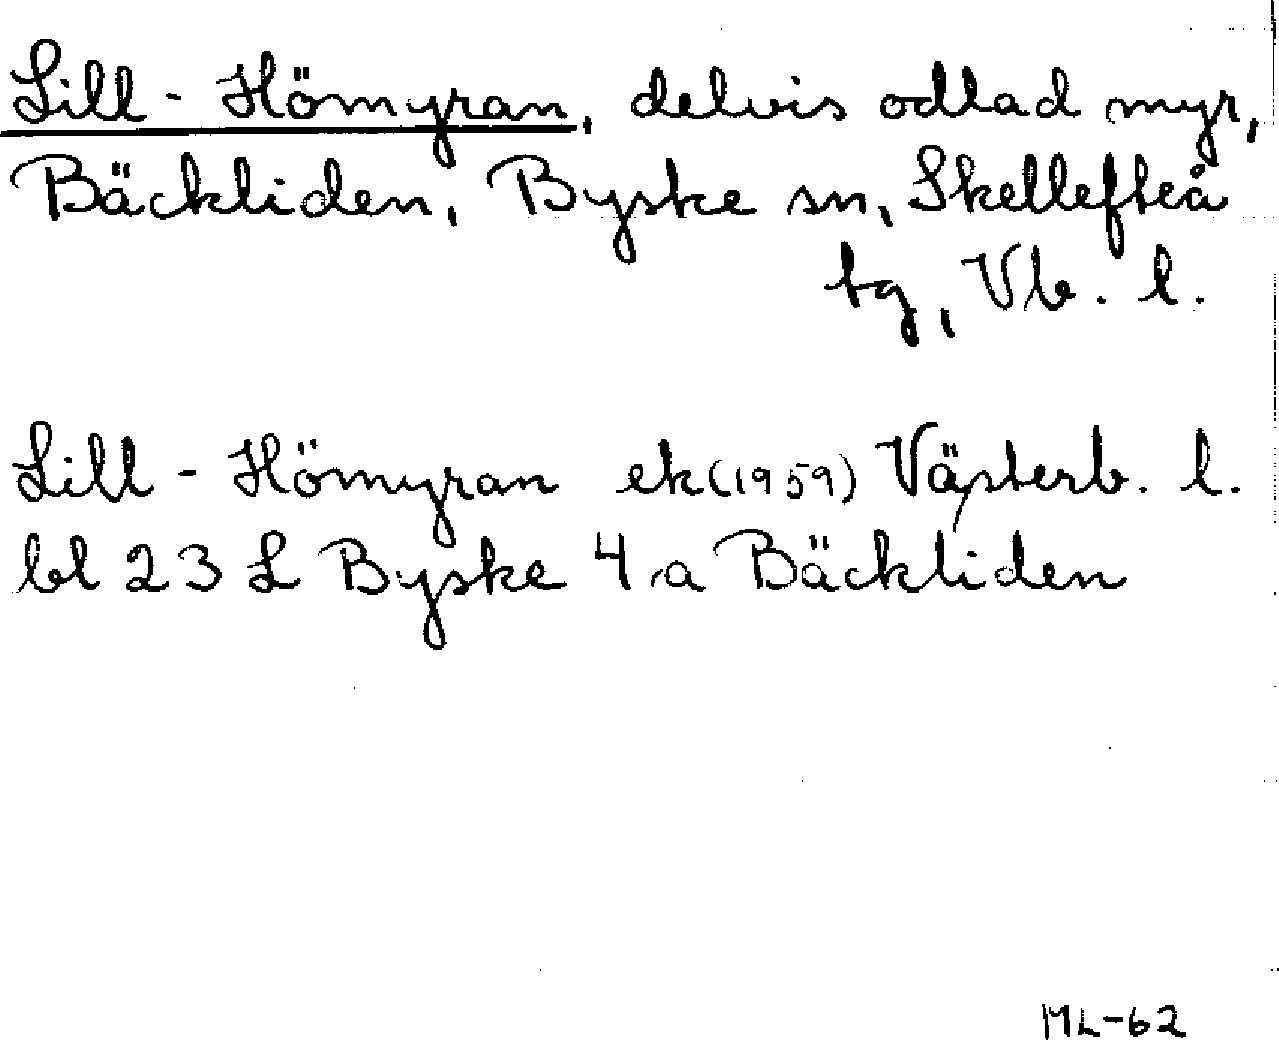 Lill - Hömyran, delvis odlad myr,
Bäckliden, Byske sn, Skellefteå
tg, Vb. l.
Lill - Hömyran ek (1959) Västerb. l.
bl 23 L Byske 4 a Bäckliden
ML-62